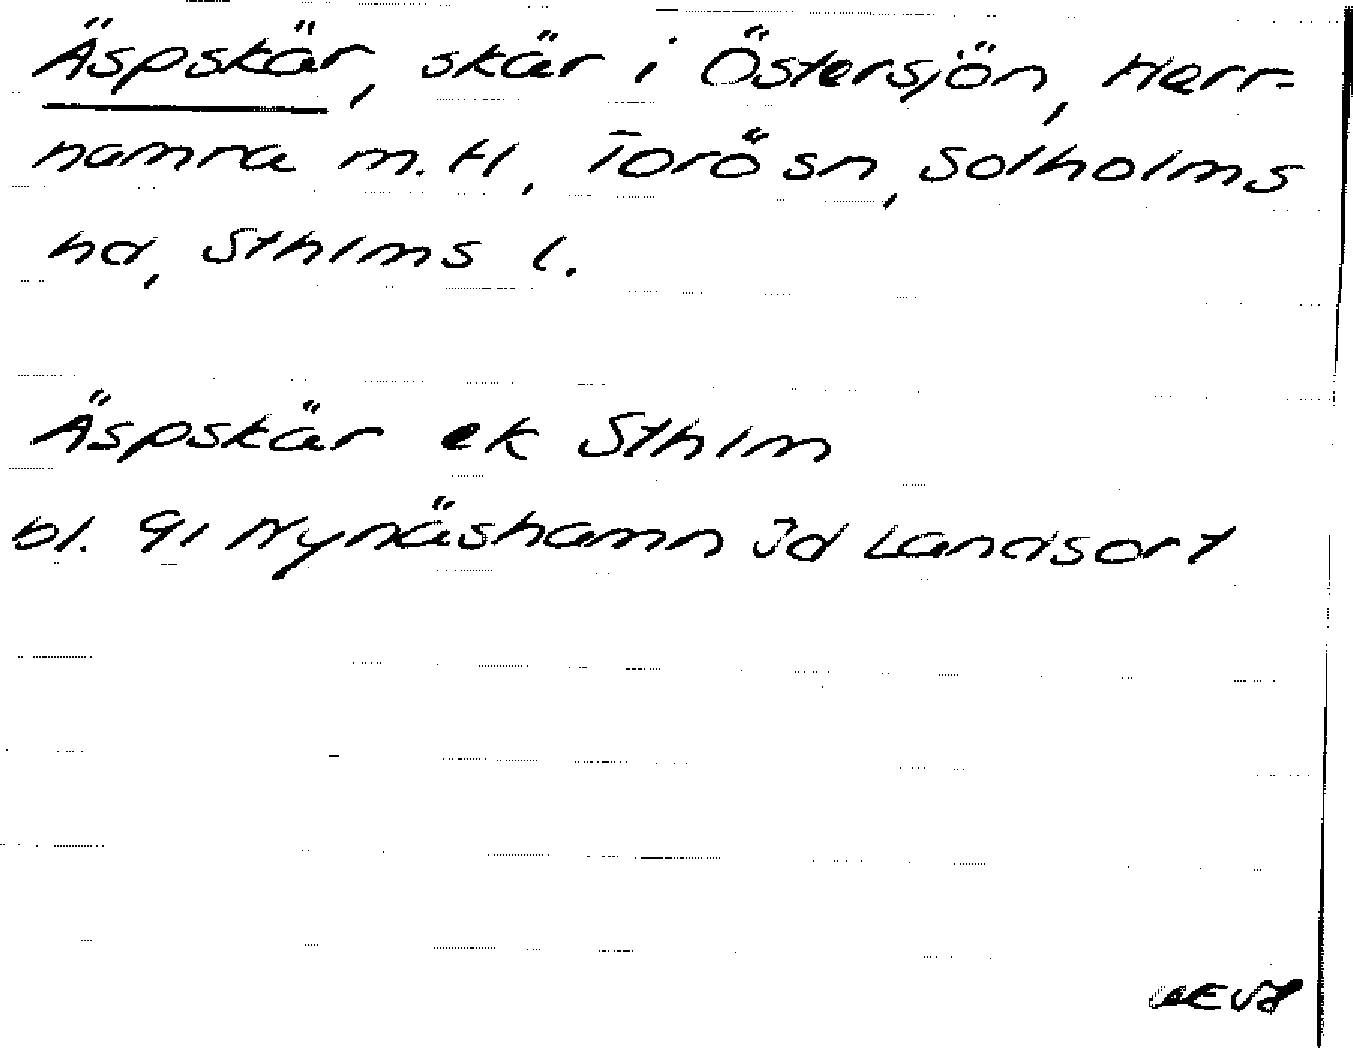 Äspskär, skär i Östersjön, Herr-
hamra m. fl., Torö sn, Solholms
hd, Sthlms l.
Äspskär ek Sthlm
bl. 91 Nynäshamn Id Landsort